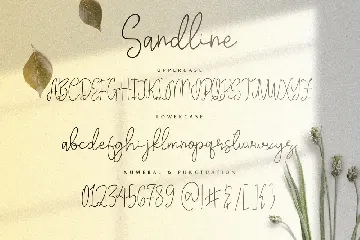 Sandline
UPPERCASE
ABCDEFGHIJKLMNOPQRSTUVWXYZ
LOWERCASE
abcdefghijklmnopqrstuvwxyz
NUMERAL & PUNCTUATION
0123456789 @!#&/[]()